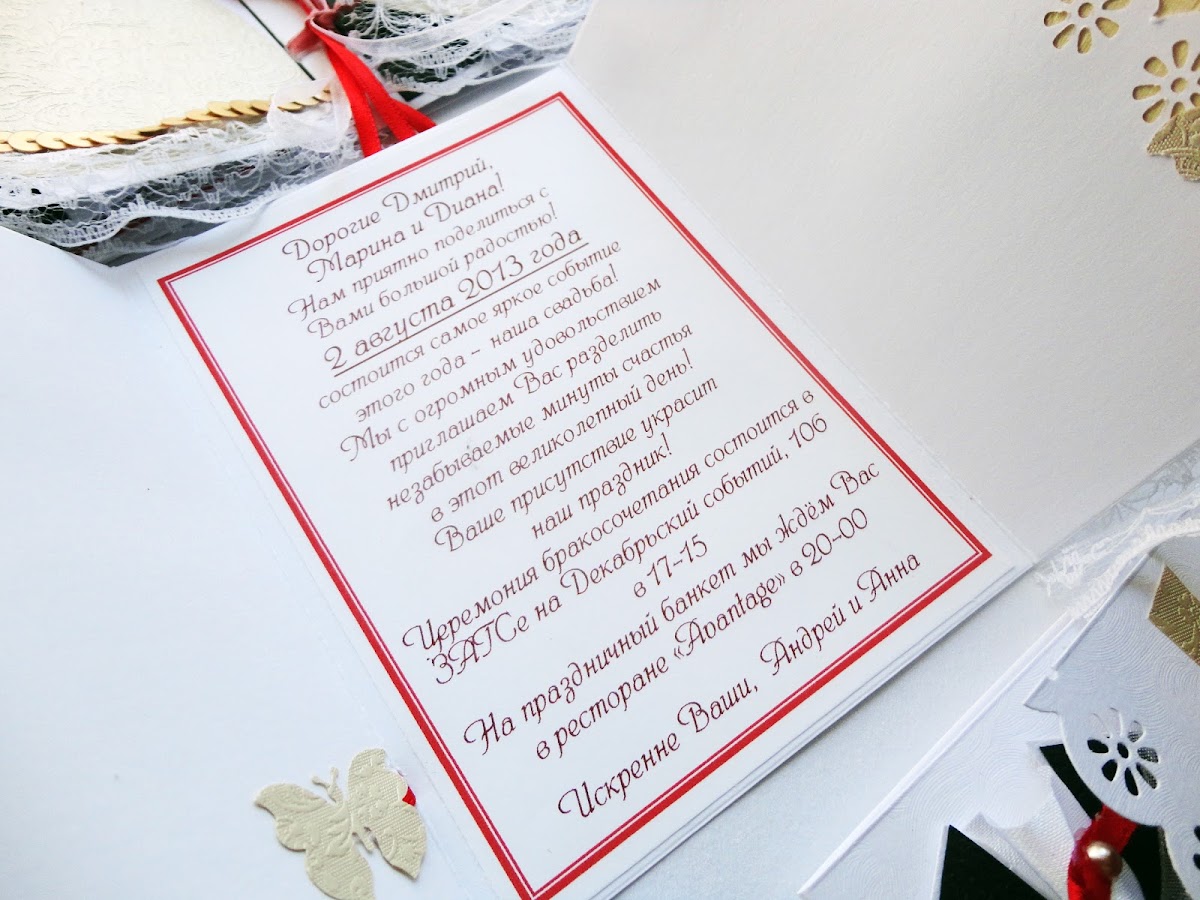 Дорогие Дмитрий,
Марина и Диана!
Нам приятно поделиться с
Вами большой радостью!
2 августа 2013 года
состоится самое яркое событие
этого года – наша свадьба!
Мы с огромным удовольствием
приглашаем Вас разделить
незабываемые минуты счастья
в этот великолепный день!
Ваше присутствие украсит
наш праздник!
Церемония бракосочетания состоится в
ЗАГСе на Декабрьский событий, 106
в 17-15
На праздничный банкет мы ждём Вас
в ресторане «Avantage» в 20-00
Искренне Ваши, Андрей и Анна